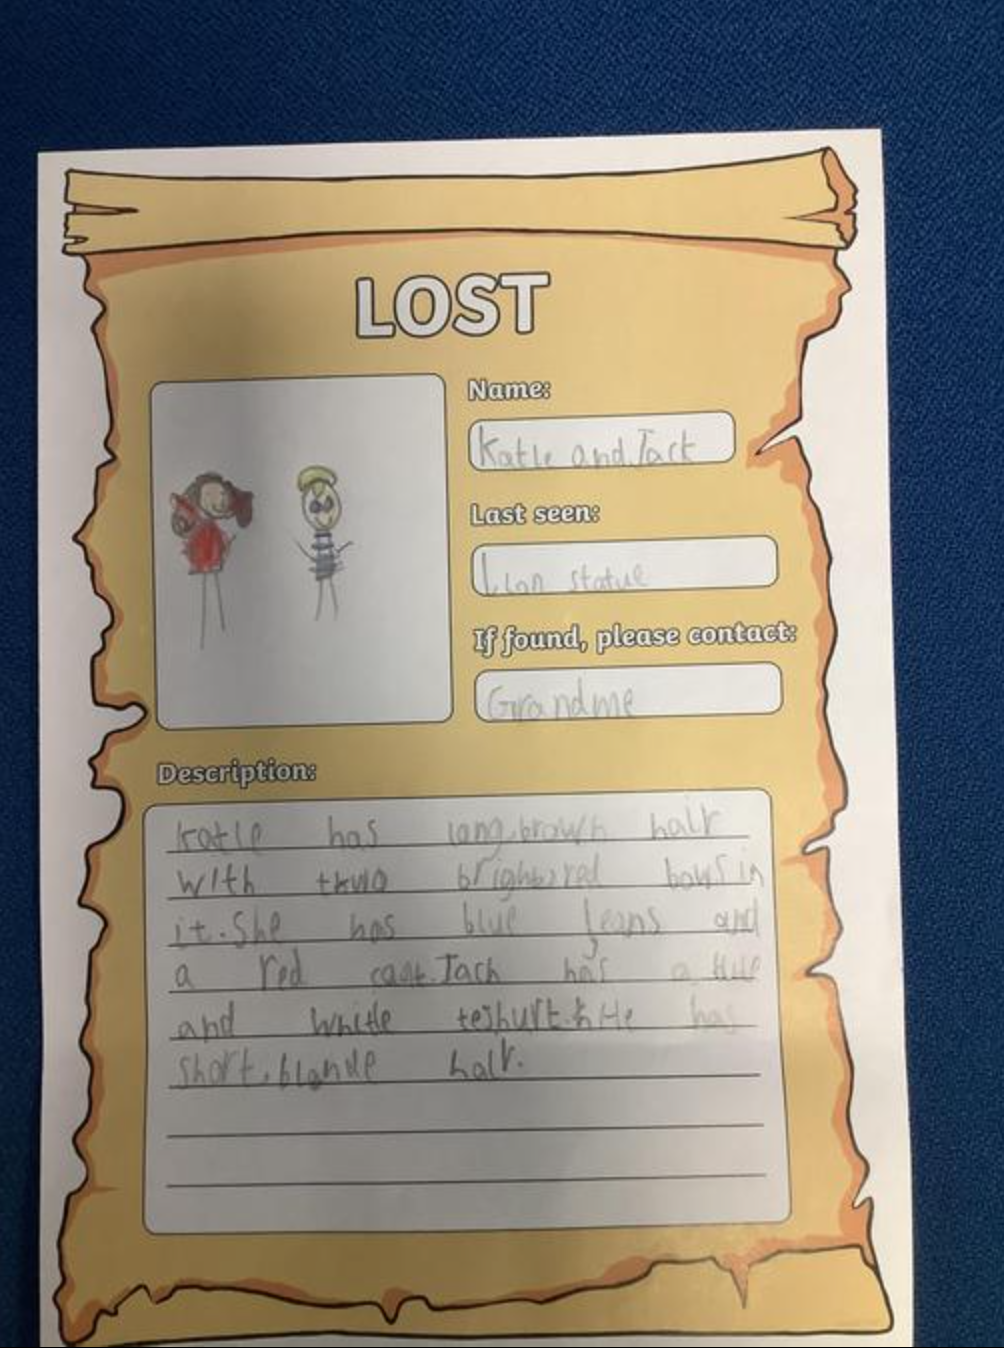 LOST
Name:
Katie and Jack
Last seen:
Lion statue
If found, please contact:
Grandme
Description:
Katie has long, brown hair
with two bright, red bows in
it. She has blue jeans and
a red coat. Jack has a blue
and white teshurt. He has
short, blonde hair.